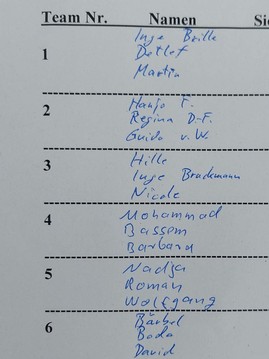 Team Nr. Namen Sie
1
Inge Brille
Detlef
Martin
2
Hanjo T.
Regina D-F.
Guido v. W.
3
Hille
Inge Bruckmann
Nicole
4
Mohammad
Bassem
Barbara
5
Nadja
Roman
Wolfgang
6
Bärbel
Bodo
David